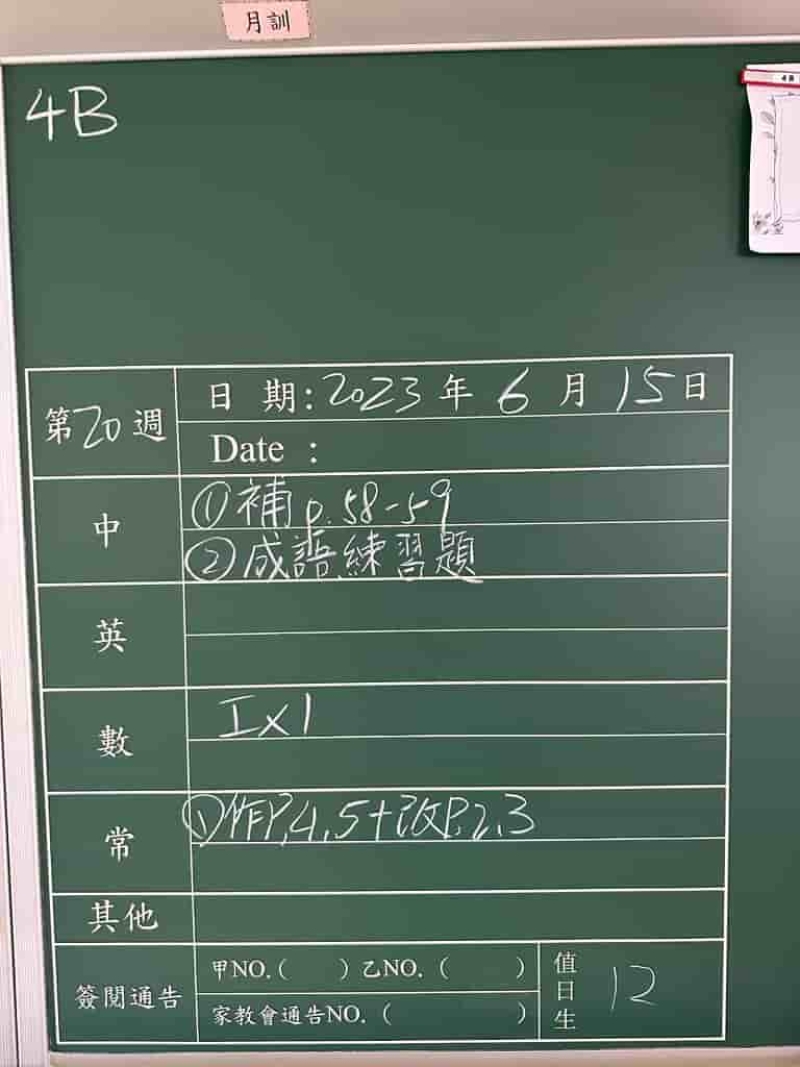 月訓
4B
4B
第20週
日 期:2023年6月15日
Date :
中
①補p.58-59
②成語練習題
英
數
工x1
常
①作P.4,5+改P.2,3
其他
簽閱通告
甲NO.( )乙NO.( )
家教會通告NO.( )
值日生
12